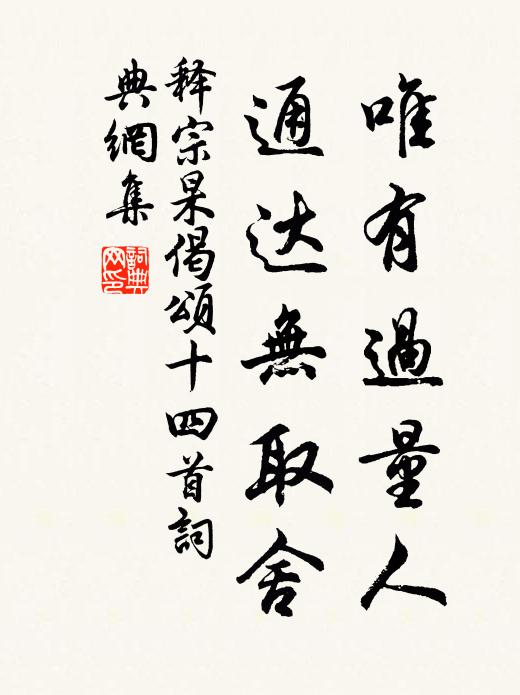 唯有過量人
通达無取舍
释宗杲偈頌十四首詞
典網集
詞典网印